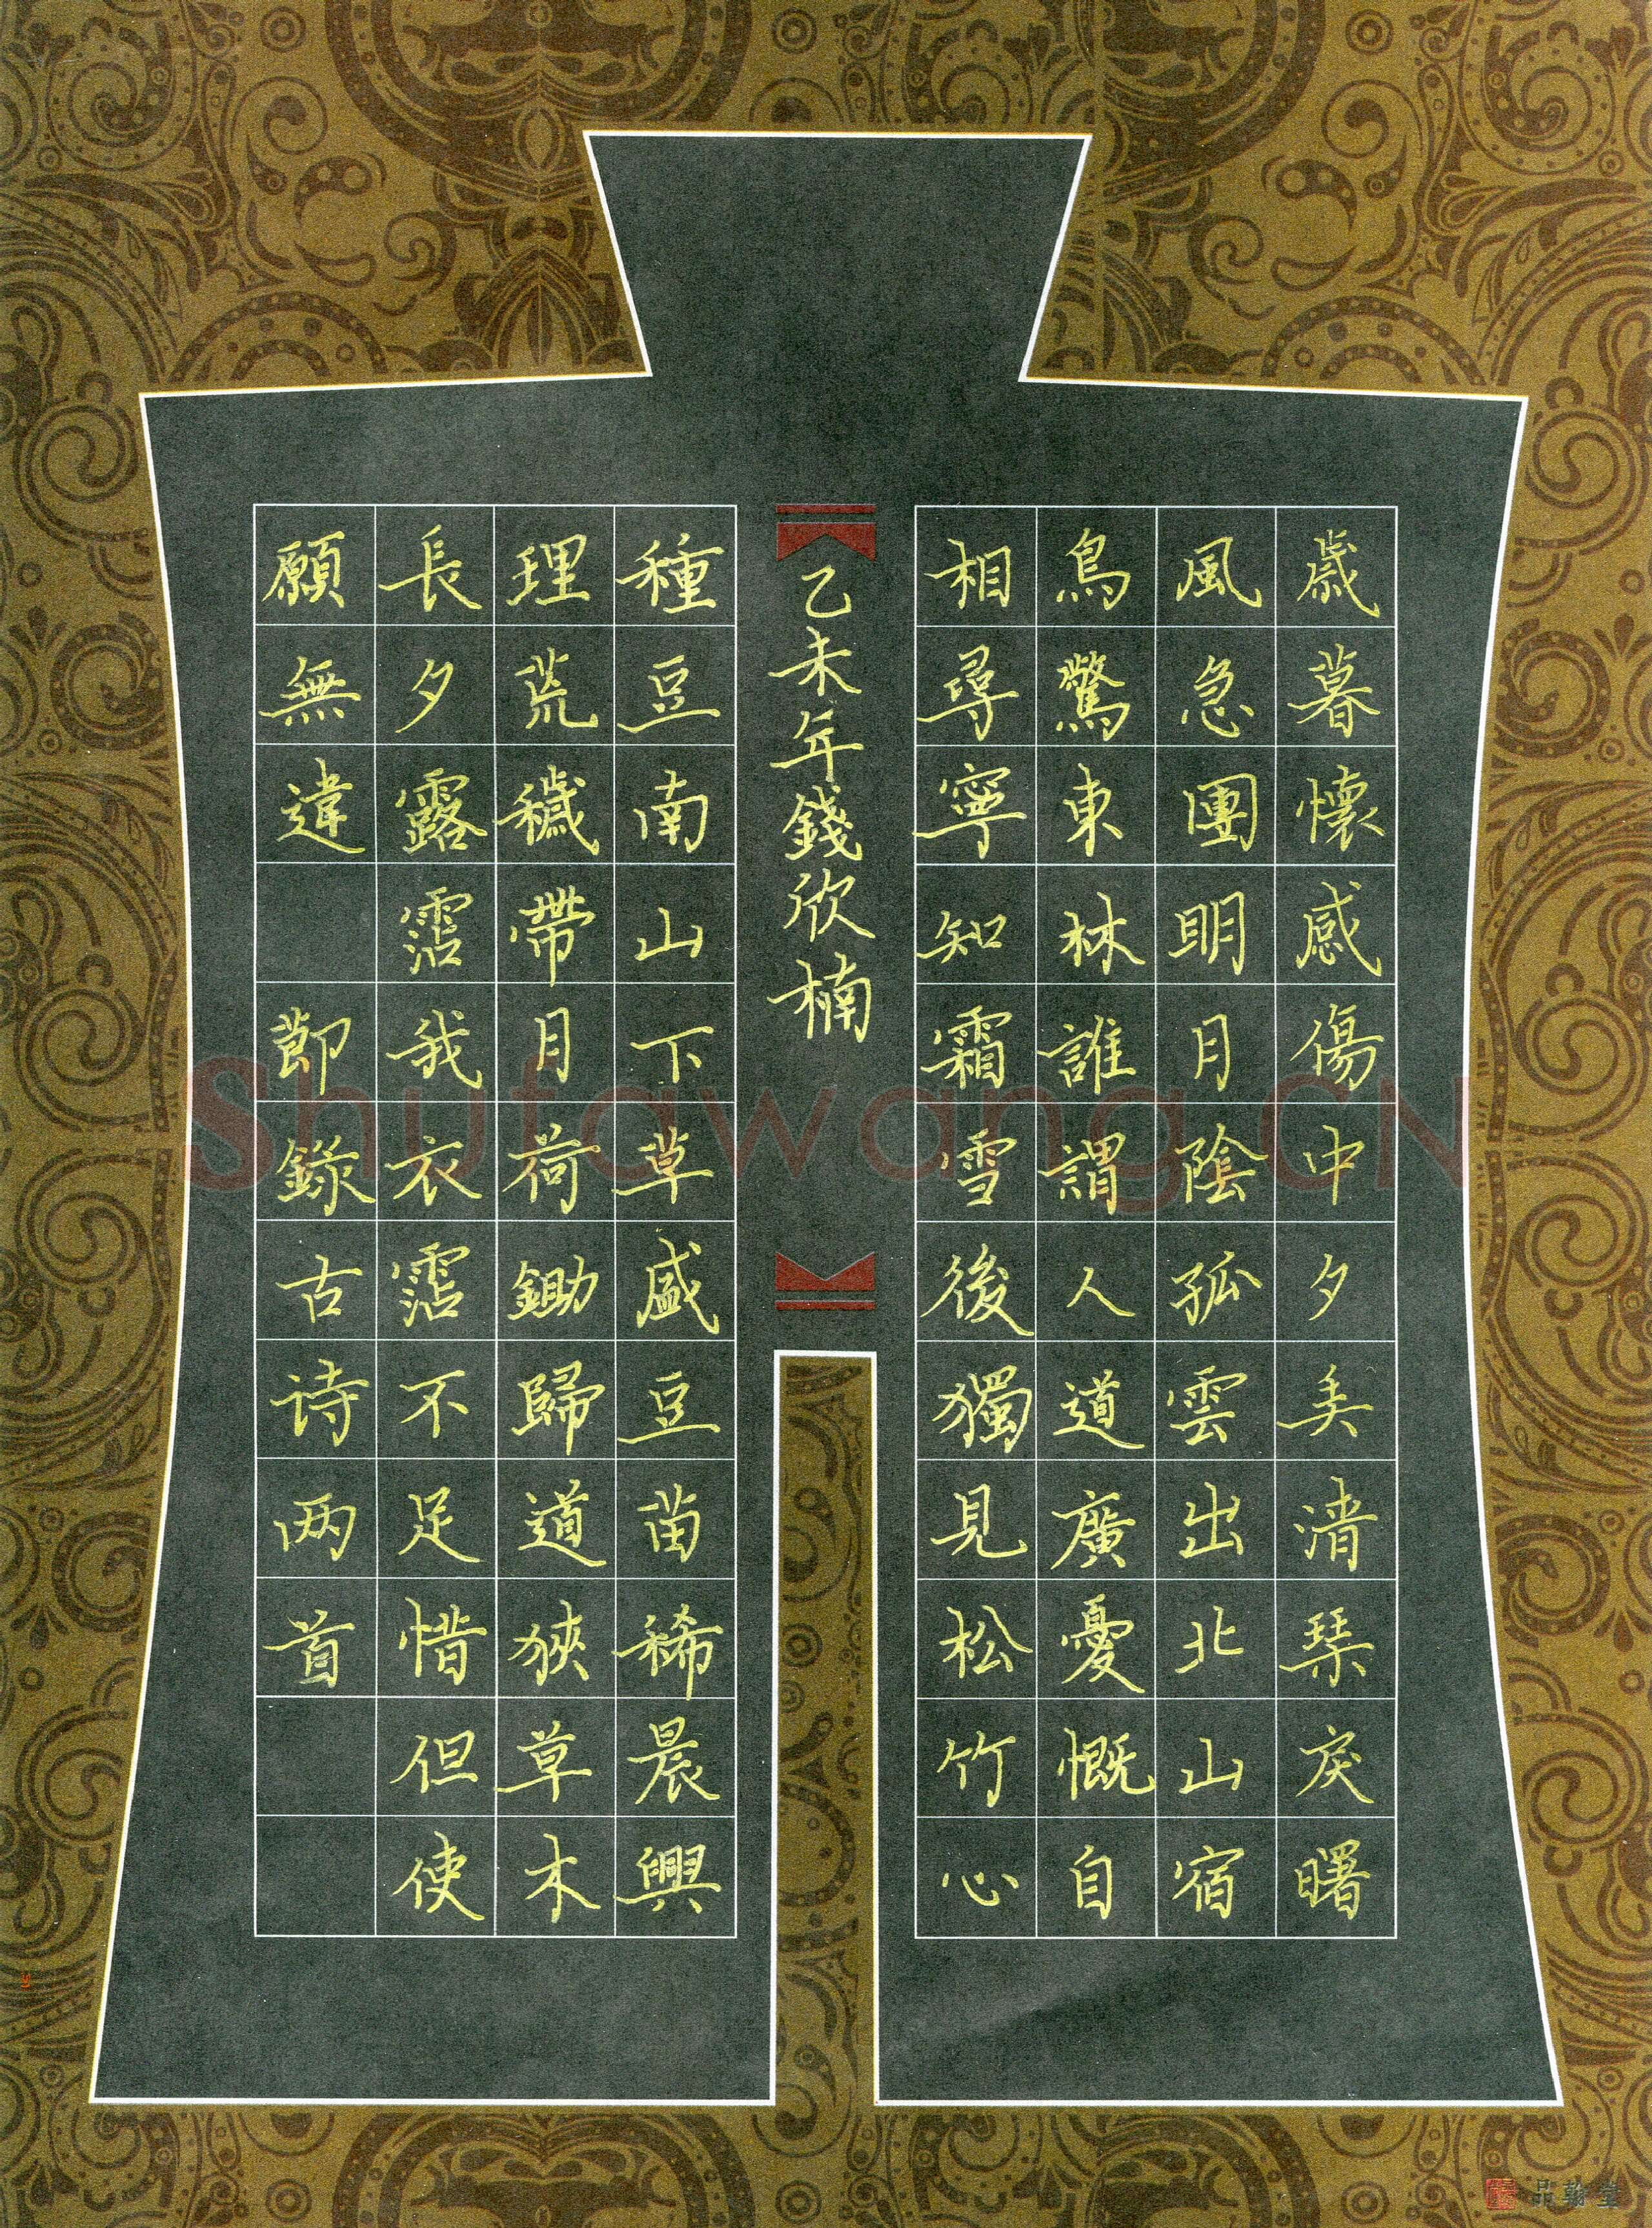 歲暮懷感傷中夕弄清琴戾曙
風急團明月陰孤雲出北山宿
鳥驚東林誰謂人道廣憂慨自
相尋寧知霜雪後獨見松竹心
乙未年錢欣楠
種豆南山下草盛豆苗稀晨興
理荒穢帶月荷鋤歸道狹草木
長夕露霑我衣霑不足惜但使
願無違 節錄古诗两首
Shufawang.CN
品翰堂